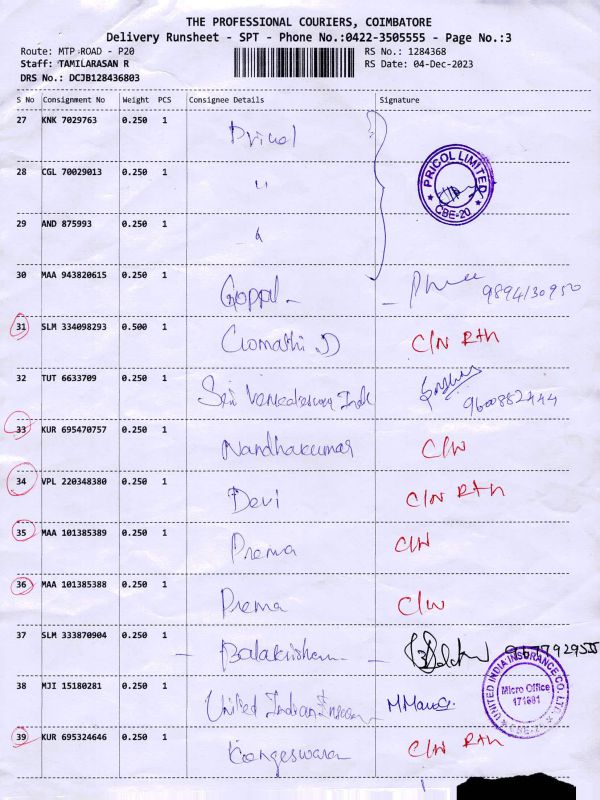 THE PROFESSIONAL COURIERS, COIMBATORE
Delivery Runsheet - SPT - Phone No.:0422-3505555 - Page No.:3
Route: MTP ROAD - P20 RS No.: 1284368
Staff: TAMILARASAN R RS Date: 04-Dec-2023
DRS No.: DCJB128436803
S No Consignment No Weight PCS Consignee Details Signature
27 KNK 7029763 0.250 1 Pricol
28 CGL 70029013 0.250 1 "
PRICOL LIMITED
CBE-20
29 AND 875993 0.250 1 "
30 MAA 943820615 0.250 1 Goppal - 9894130950
31 SLM 334098293 0.500 1 Gomathi D C/N RTH
32 TUT 6633709 0.250 1 Sri Venkateswara Inds 9600882444
33 KUR 695470757 0.250 1 Nandhakumar C/N
34 VPL 220348380 0.250 1 Devi C/N RTH
35 MAA 101385389 0.250 1 Prema C/N
36 MAA 101385388 0.250 1 Prema C/N
37 SLM 333870904 0.250 1 - Balakrishnan -
38 MJI 15180281 0.250 1 United Indian
UNITED INDIA INSURANCE CO. LTD.
Micro Office
171681
CBE-20
39 KUR 695324646 0.250 1 Kongeswaran C/N RTH